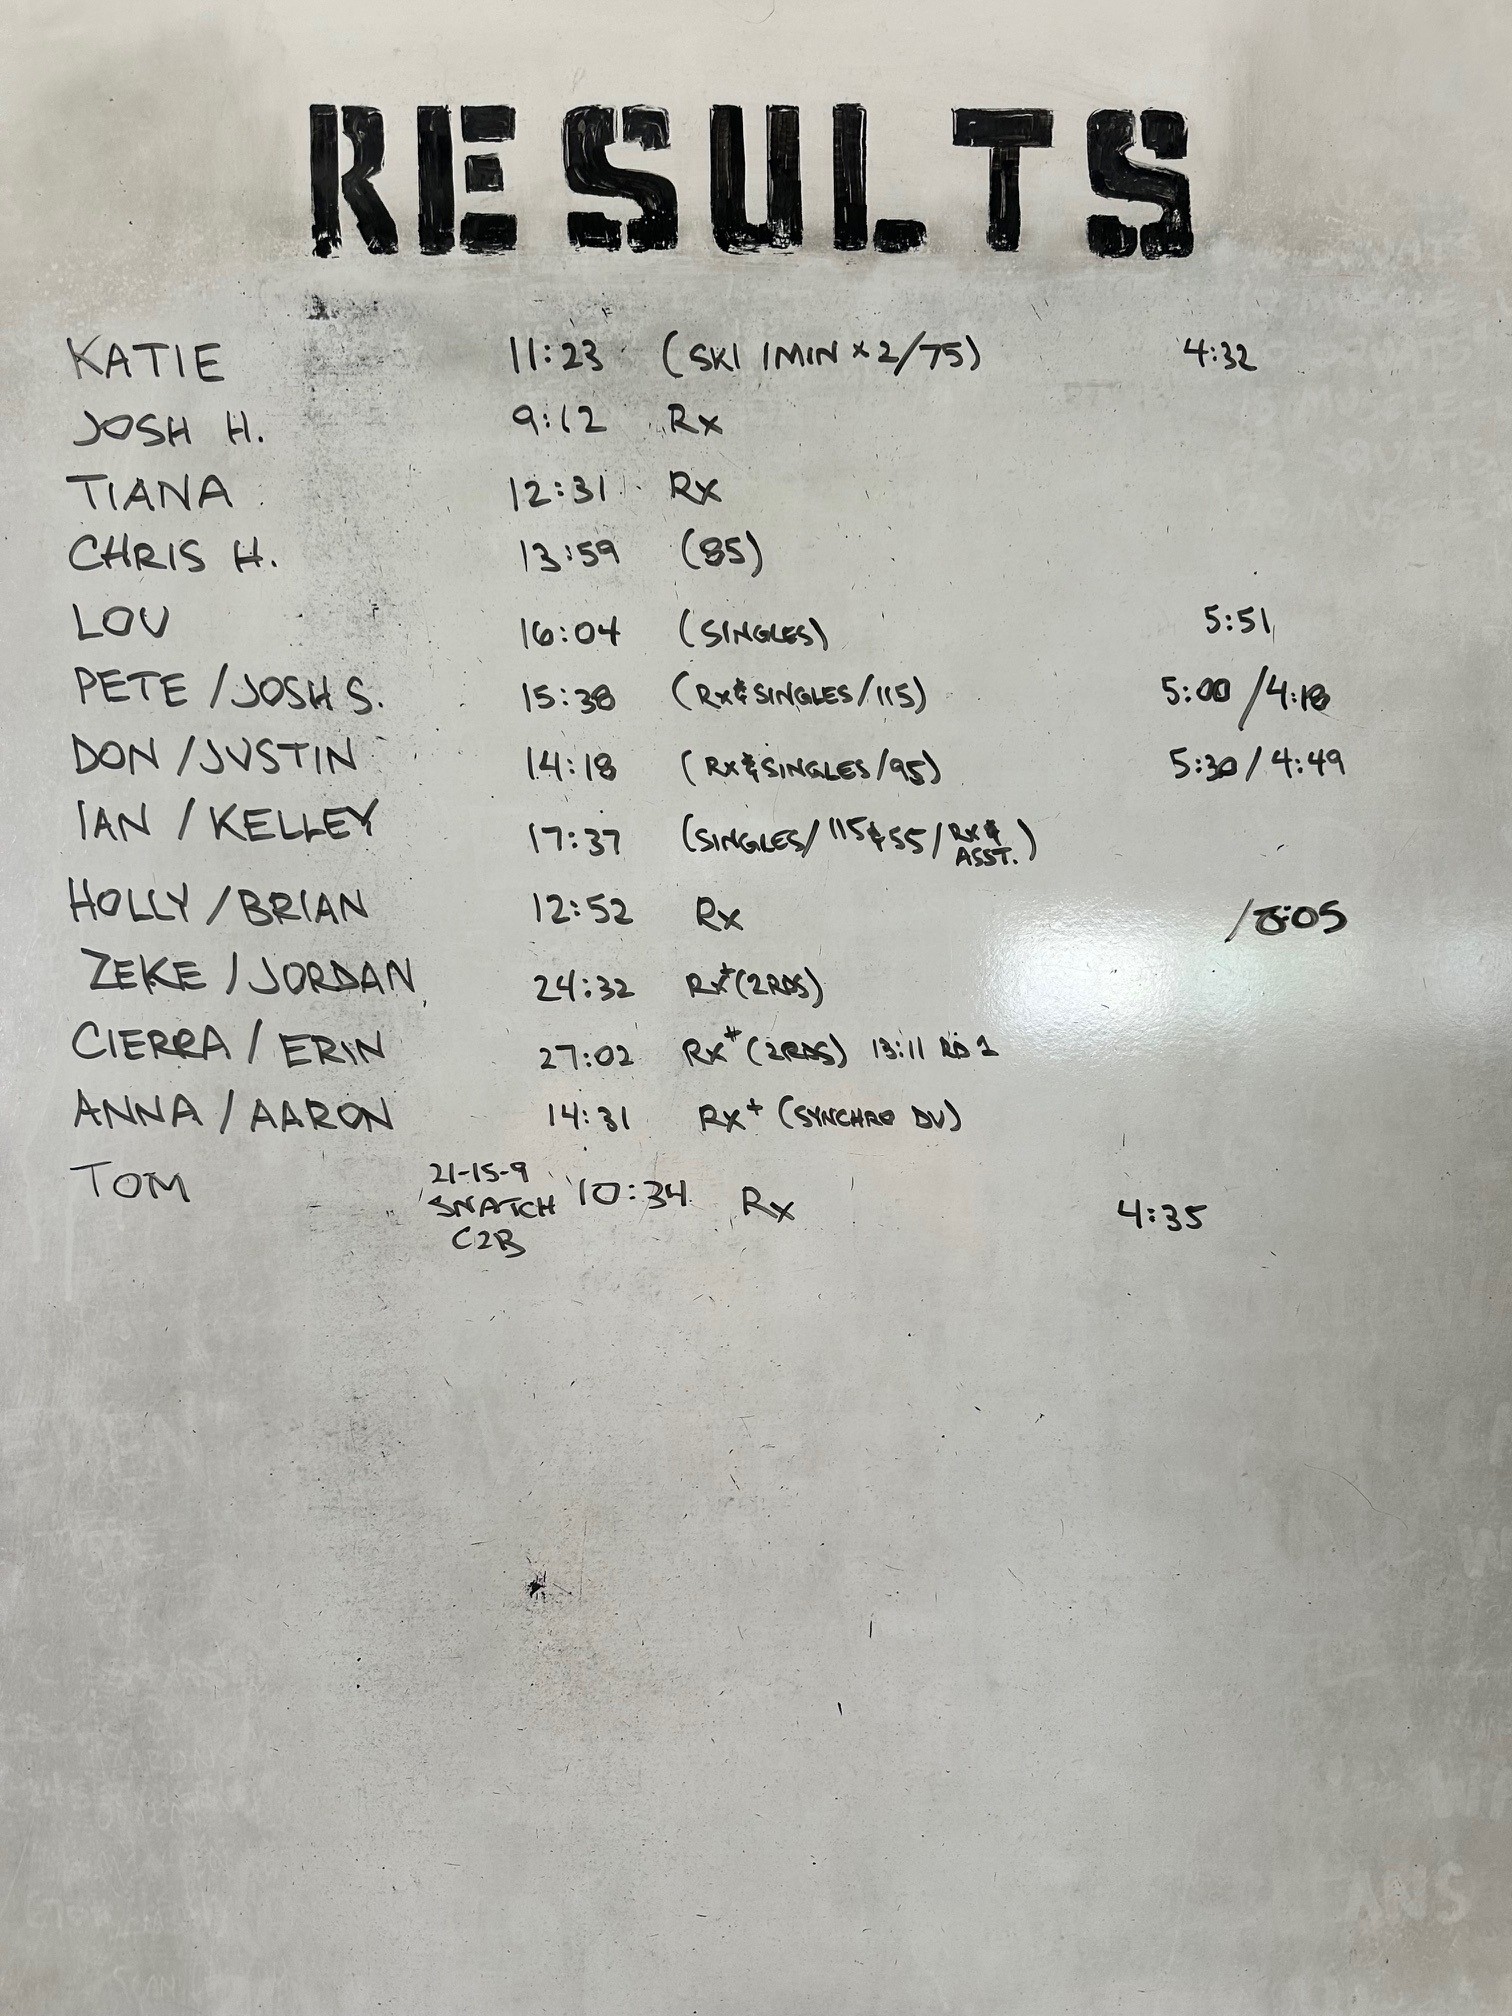 RESULTS
KATIE 11:23 (SKI 1MIN x 2/75) 4:32
JOSH H. 9:12 Rx
TIANA 12:31 Rx
CHRIS H. 13:59 (85)
LOU 16:04 (SINGLES) 5:51
PETE / JOSH S. 15:38 (Rx & SINGLES / 115) 5:00 / 4:18
DON / JUSTIN 14:18 (Rx & SINGLES / 95) 5:30 / 4:49
IAN / KELLEY 17:37 (SINGLES / 115 & 55 / Rx & ASST.)
HOLLY / BRIAN 12:52 Rx /
ZEKE / JORDAN 24:32 Rx+ (2RDS)
CIERRA / ERIN 27:02 Rx+ (2RDS) 13:11 RD 1
ANNA / AARON 14:31 Rx+ (SYNCHRO DU)
TOM 21-15-9 SNATCH C2B 10:34 Rx 4:35